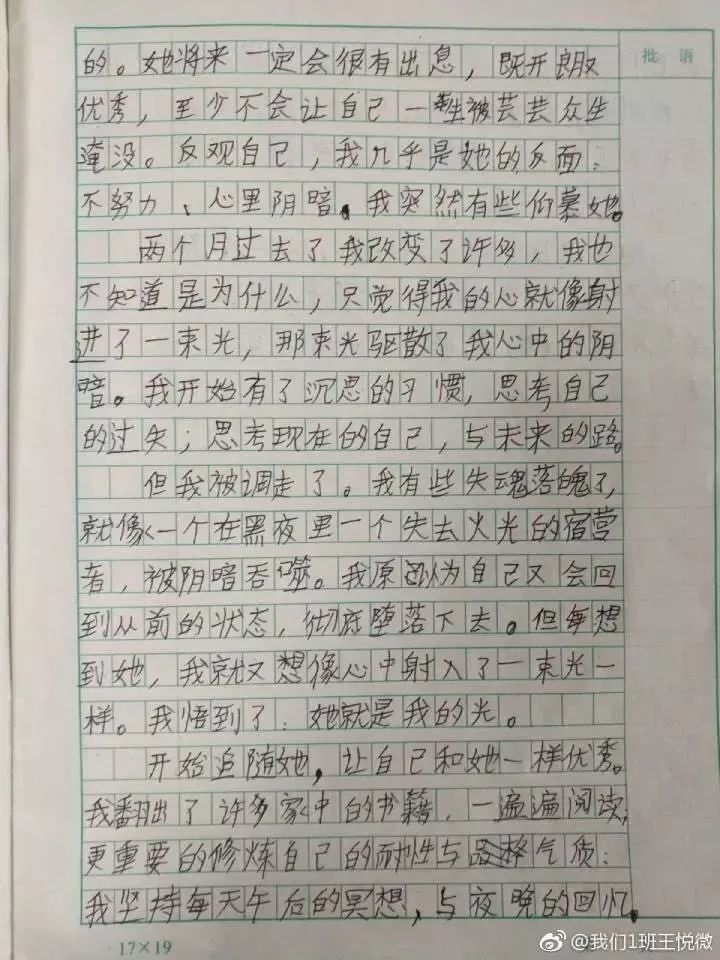 批语
的。她将来一定会很有出息，既开朗又
优秀，至少不会让自己一生被芸芸众生
淹没。反观自己，我几乎是她的反面：
不努力、心里阴暗。我突然有些仰慕她。
两个月过去了我改变了许多，我也
不知道是为什么，只觉得我的心就像射
进了一束光，那束光驱散了我心中的阴
暗。我开始有了沉思的习惯，思考自己
的过失；思考现在的自己，与未来的路。
但我被调走了。我有些失魂落魄了，
就像一个在黑夜里一个失去火光的宿营
者，被阴暗吞噬。我原以为自己又会回
到从前的状态，彻底堕落下去。但每想
到她，我就又想像心中射入了一束光一
样。我悟到了：她就是我的光。
开始追随她，让自己和她一样优秀。
我翻出了许多家中的书籍，一遍遍阅读；
更重要的修炼自己的耐性与气质：
我坚持每天午后的冥想，与夜晚的回忆。
17×19
@我们1班王悦微